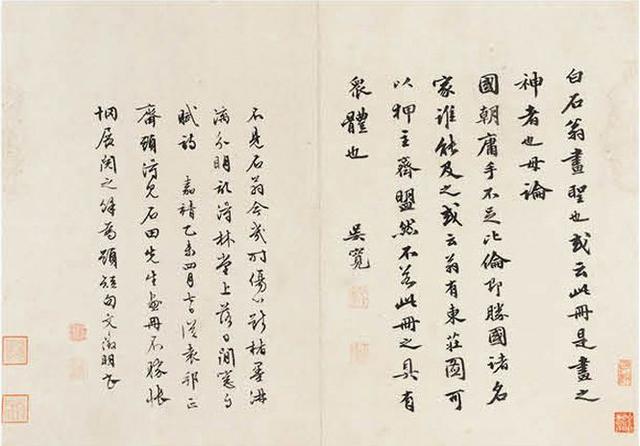 白石翁畫聖也或云此冊是畫之
神者也毋論
國朝庸手不足比倫即勝國諸名
家誰能及之或云翁有東莊圖可
以狎主齊盟然不若此冊之具有
衆體也
吳寬
不見石翁今幾時傷心斷楮墨淋
漓分明記得林堂上落日窗
賦詩 嘉靖乙未四月七日從袁邦正
齋頭見石田先生畫冊不勝悵
惘展閱之餘為題短句文徵明書